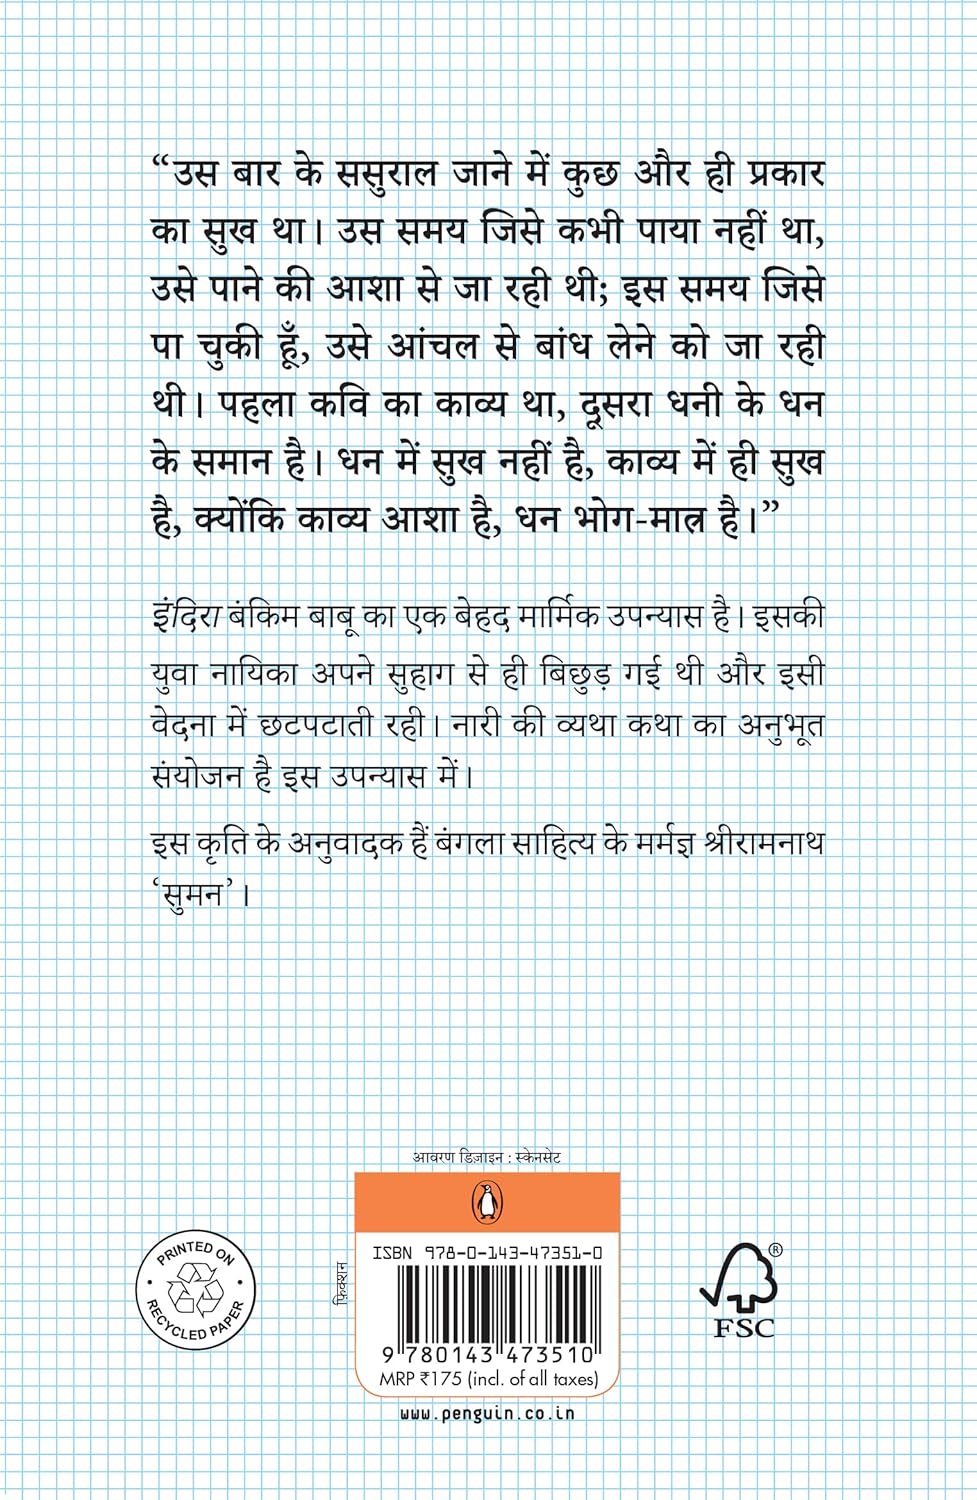 “उस बार के ससुराल जाने में कुछ और ही प्रकार
का सुख था। उस समय जिसे कभी पाया नहीं था,
उसे पाने की आशा से जा रही थी; इस समय जिसे
पा चुकी हूँ, उसे आंचल से बांध लेने को जा रही
थी। पहला कवि का काव्य था, दूसरा धनी के धन
के समान है। धन में सुख नहीं है, काव्य में ही सुख
है, क्योंकि काव्य आशा है, धन भोग-मात्र है।”
इंदिरा बंकिम बाबू का एक बेहद मार्मिक उपन्यास है। इसकी
युवा नायिका अपने सुहाग से ही बिछुड़ गई थी और इसी
वेदना में छटपटाती रही। नारी की व्यथा कथा का अनुभूत
संयोजन है इस उपन्यास में।
इस कृति के अनुवादक हैं बंगला साहित्य के मर्मज्ञ श्रीरामनाथ
‘सुमन’।
आवरण डिज़ाइन : स्केनसेट
PRINTED ON
RECYCLED PAPER
फ़िक्शन
ISBN 978-0-143-47351-0
9 780143 473510
MRP ₹175 (incl. of all taxes)
www.penguin.co.in
®
FSC